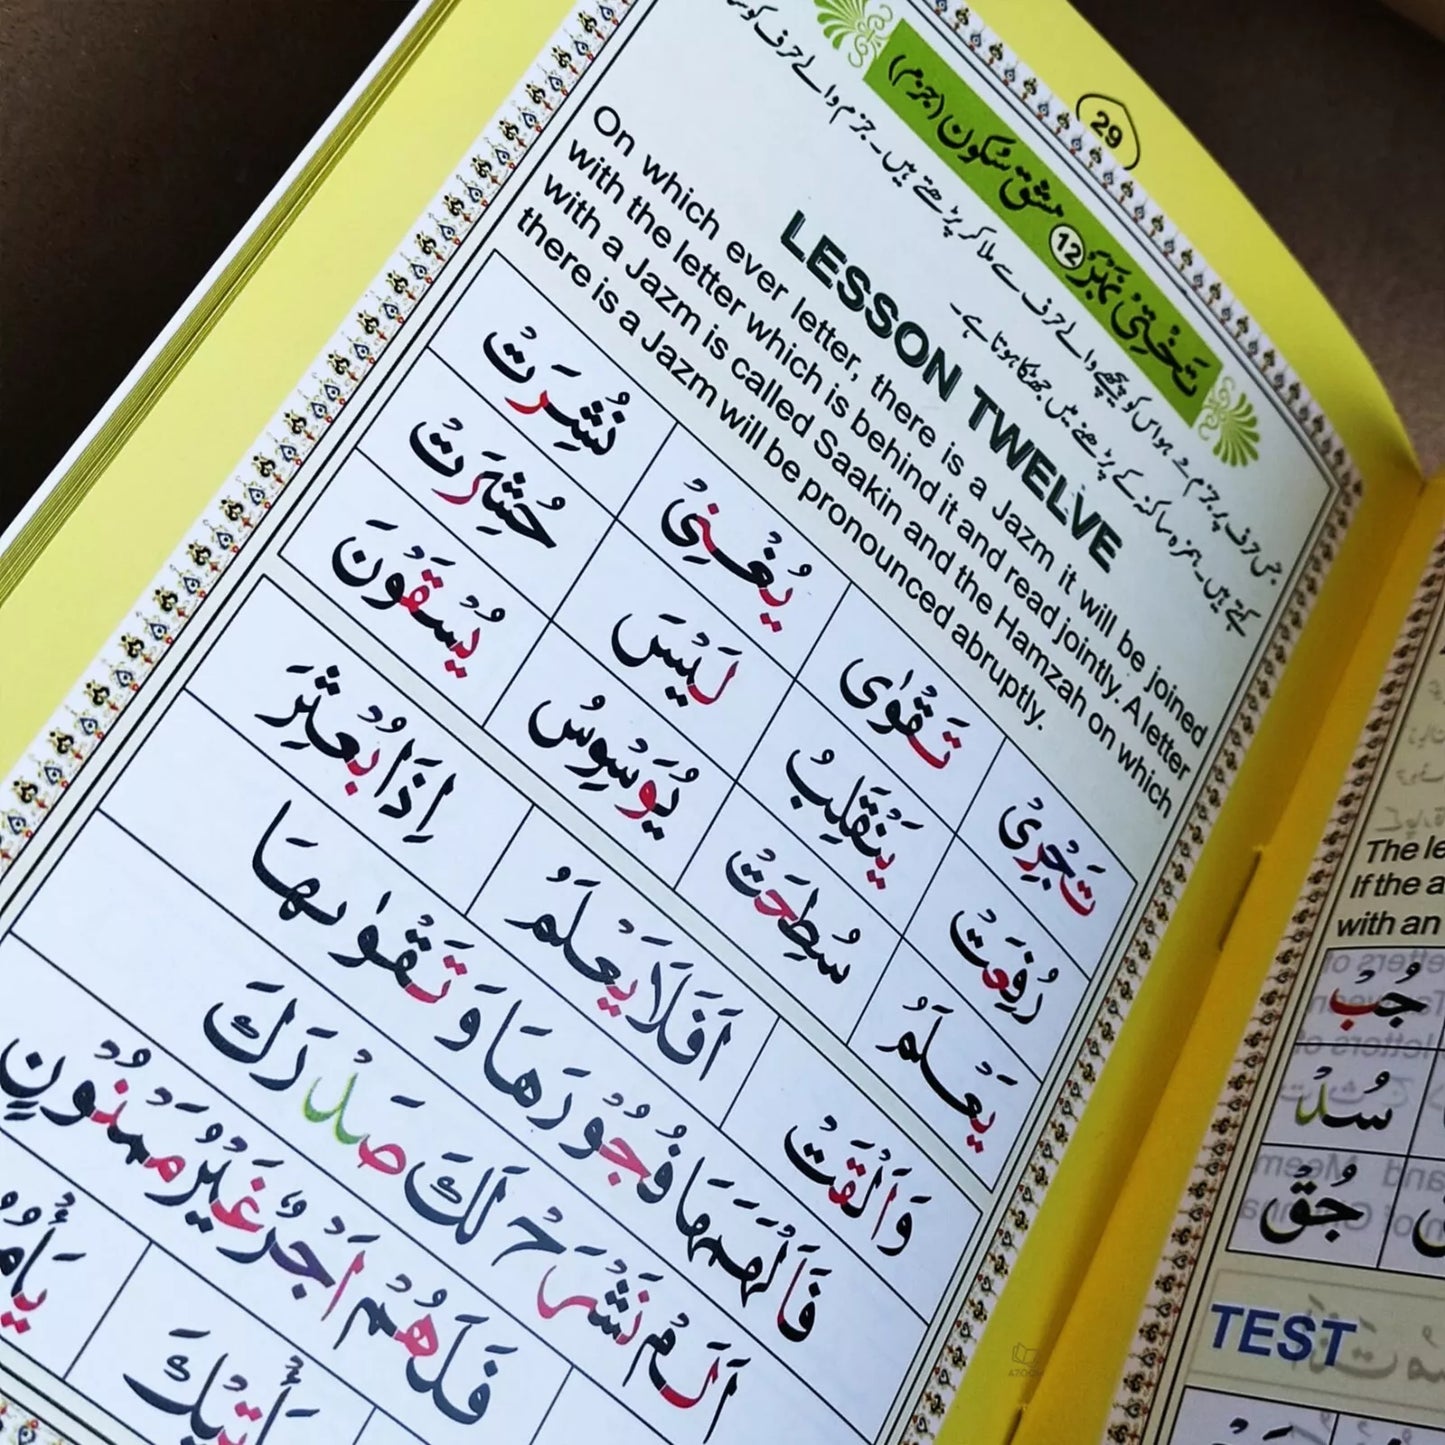 29
تختی نمبر ۱۲ مشق سکون (جزم)
جس حرف پر جزم ہو اس کو پیچھے والے حرف سے ملا کر پڑھتے ہیں۔ جزم والے حرف کو
کہتے ہیں۔ ہمزہ ساکنہ کے پڑھنے میں جھٹکا ہوتا ہے۔
LESSON TWELVE
On which ever letter, there is a Jazm it will be joined
with the letter which is behind it and read jointly. A letter
with a Jazm is called Saakin and the Hamzah on which
there is a Jazm will be pronounced abruptly.
تَجْرِیْ تَقْوٰی یُغْنِیْ نُشِرَتْ
رُفِعَتْ یَنْقَلِبُ لَیْسَ حُشِرَتْ
یَعْلَمُ سُطِحَتْ یُوَسْوِسُ یُسْقَوْنَ
وَاَلْقَتْ اَفَلَا یَعْلَمُ اِذَا بُعْثِرَ
فَاَلْهَمَهَا فُجُوْرَهَا وَ تَقْوٰىهَا
اَلَمْ نَشْرَحْ لَكَ صَدْرَكَ
فَلَهُمْ اَجْرٌ غَیْرُ مَمْنُوْنٍ
The le
If the a
with an
جُبْ
سُدْ
جُقْ
TEST